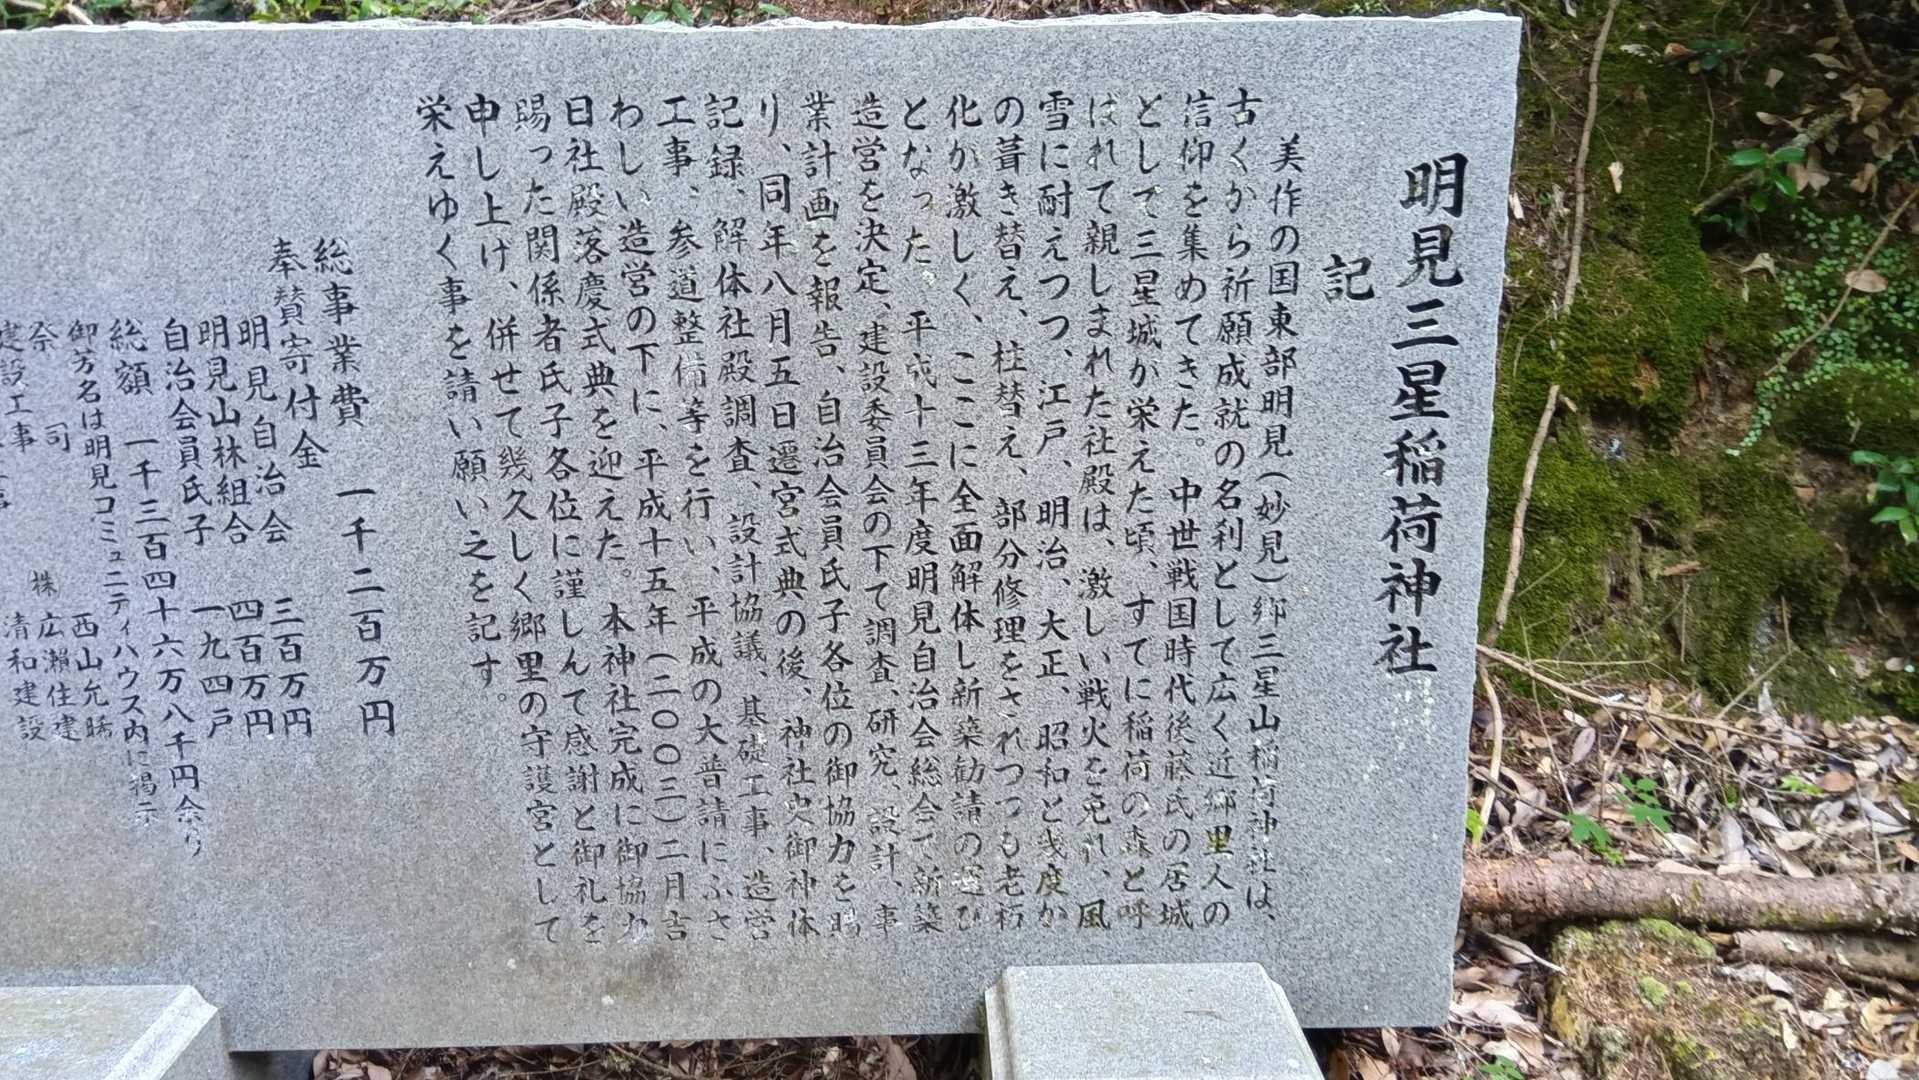 明見三星稲荷神社
記
美作の国東部明見(妙見)郷三星山稲荷神社は、
古くから祈願成就の名利として広く近郷里人の
信仰を集めてきた。中世戦国時代後藤氏の居城
として三星城が栄えた頃、すでに稲荷の森と呼
ばれて親しまれた社殿は、激しい戦火を免れ、風
雪に耐えつつ、江戸、明治、大正、昭和と幾度か
の葺き替え、柱替え、部分修理をされつつも老朽
化が激しく、ここに全面解体し新築勧請の運び
となった。平成十三年度明見自治会総会で新築
造営を決定、建設委員会の下で調査、研究、設計、事
業計画を報告、自治会員氏子各位の御協力を賜
り、同年八月五日遷宮式典の後、神社史御神体
記録、解体社殿調査、設計協議、基礎工事、造営
工事、参道整備等を行い、平成の大普請にふさ
わしい造営の下に、平成十五年(二〇〇三)二月吉
日社殿落慶式典を迎えた。本神社完成に御協力
賜った関係者氏子各位に謹しんで感謝と御礼を
申し上げ、併せて幾久しく郷里の守護宮として
栄えゆく事を請い願い之を記す。
総事業費 一千二百万円
奉賛寄付金
明見自治会 三百万円
明見山林組合 四百万円
自治会員氏子 一九四戸
総額 一千三百四十六万八千円余り
御芳名は明見コミュニティハウス内に掲示
祭司 西山允
建設工事 株 広瀬住建
清和建設